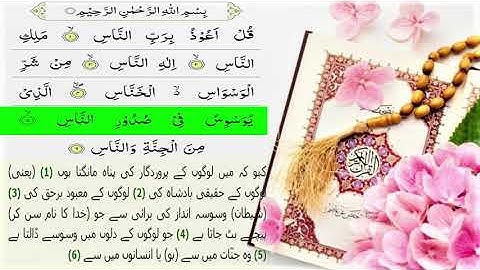 بِسْمِ اللّٰهِ الرَّحْمٰنِ الرَّحِيْمِ
قُلْ اَعُوْذُ بِرَبِّ النَّاسِ ۙ﴿۱﴾ مَلِكِ
النَّاسِ ۙ﴿۲﴾ اِلٰهِ النَّاسِ ۙ﴿۳﴾ مِنْ شَرِّ
الْوَسْوَاسِ ۙ۬ الْخَنَّاسِ ۪ۙ﴿۴﴾ الَّذِیْ
یُوَسْوِسُ فِیْ صُدُوْرِ النَّاسِ ۙ﴿۵﴾
مِنَ الْجِنَّةِ وَالنَّاسِ ﴿۶﴾
کہو کہ میں لوگوں کے پروردگار کی پناہ مانگتا ہوں (1) (یعنی)
لوگوں کے حقیقی بادشاہ کی (2) لوگوں کے معبود برحق کی (3)
(شیطان) وسوسہ انداز کی برائی سے جو (خدا کا نام سن کر)
پیچھے ہٹ جاتا ہے (4) جو لوگوں کے دلوں میں وسوسے ڈالتا ہے
(5) وہ جنّات میں سے (ہو) یا انسانوں میں سے (6)